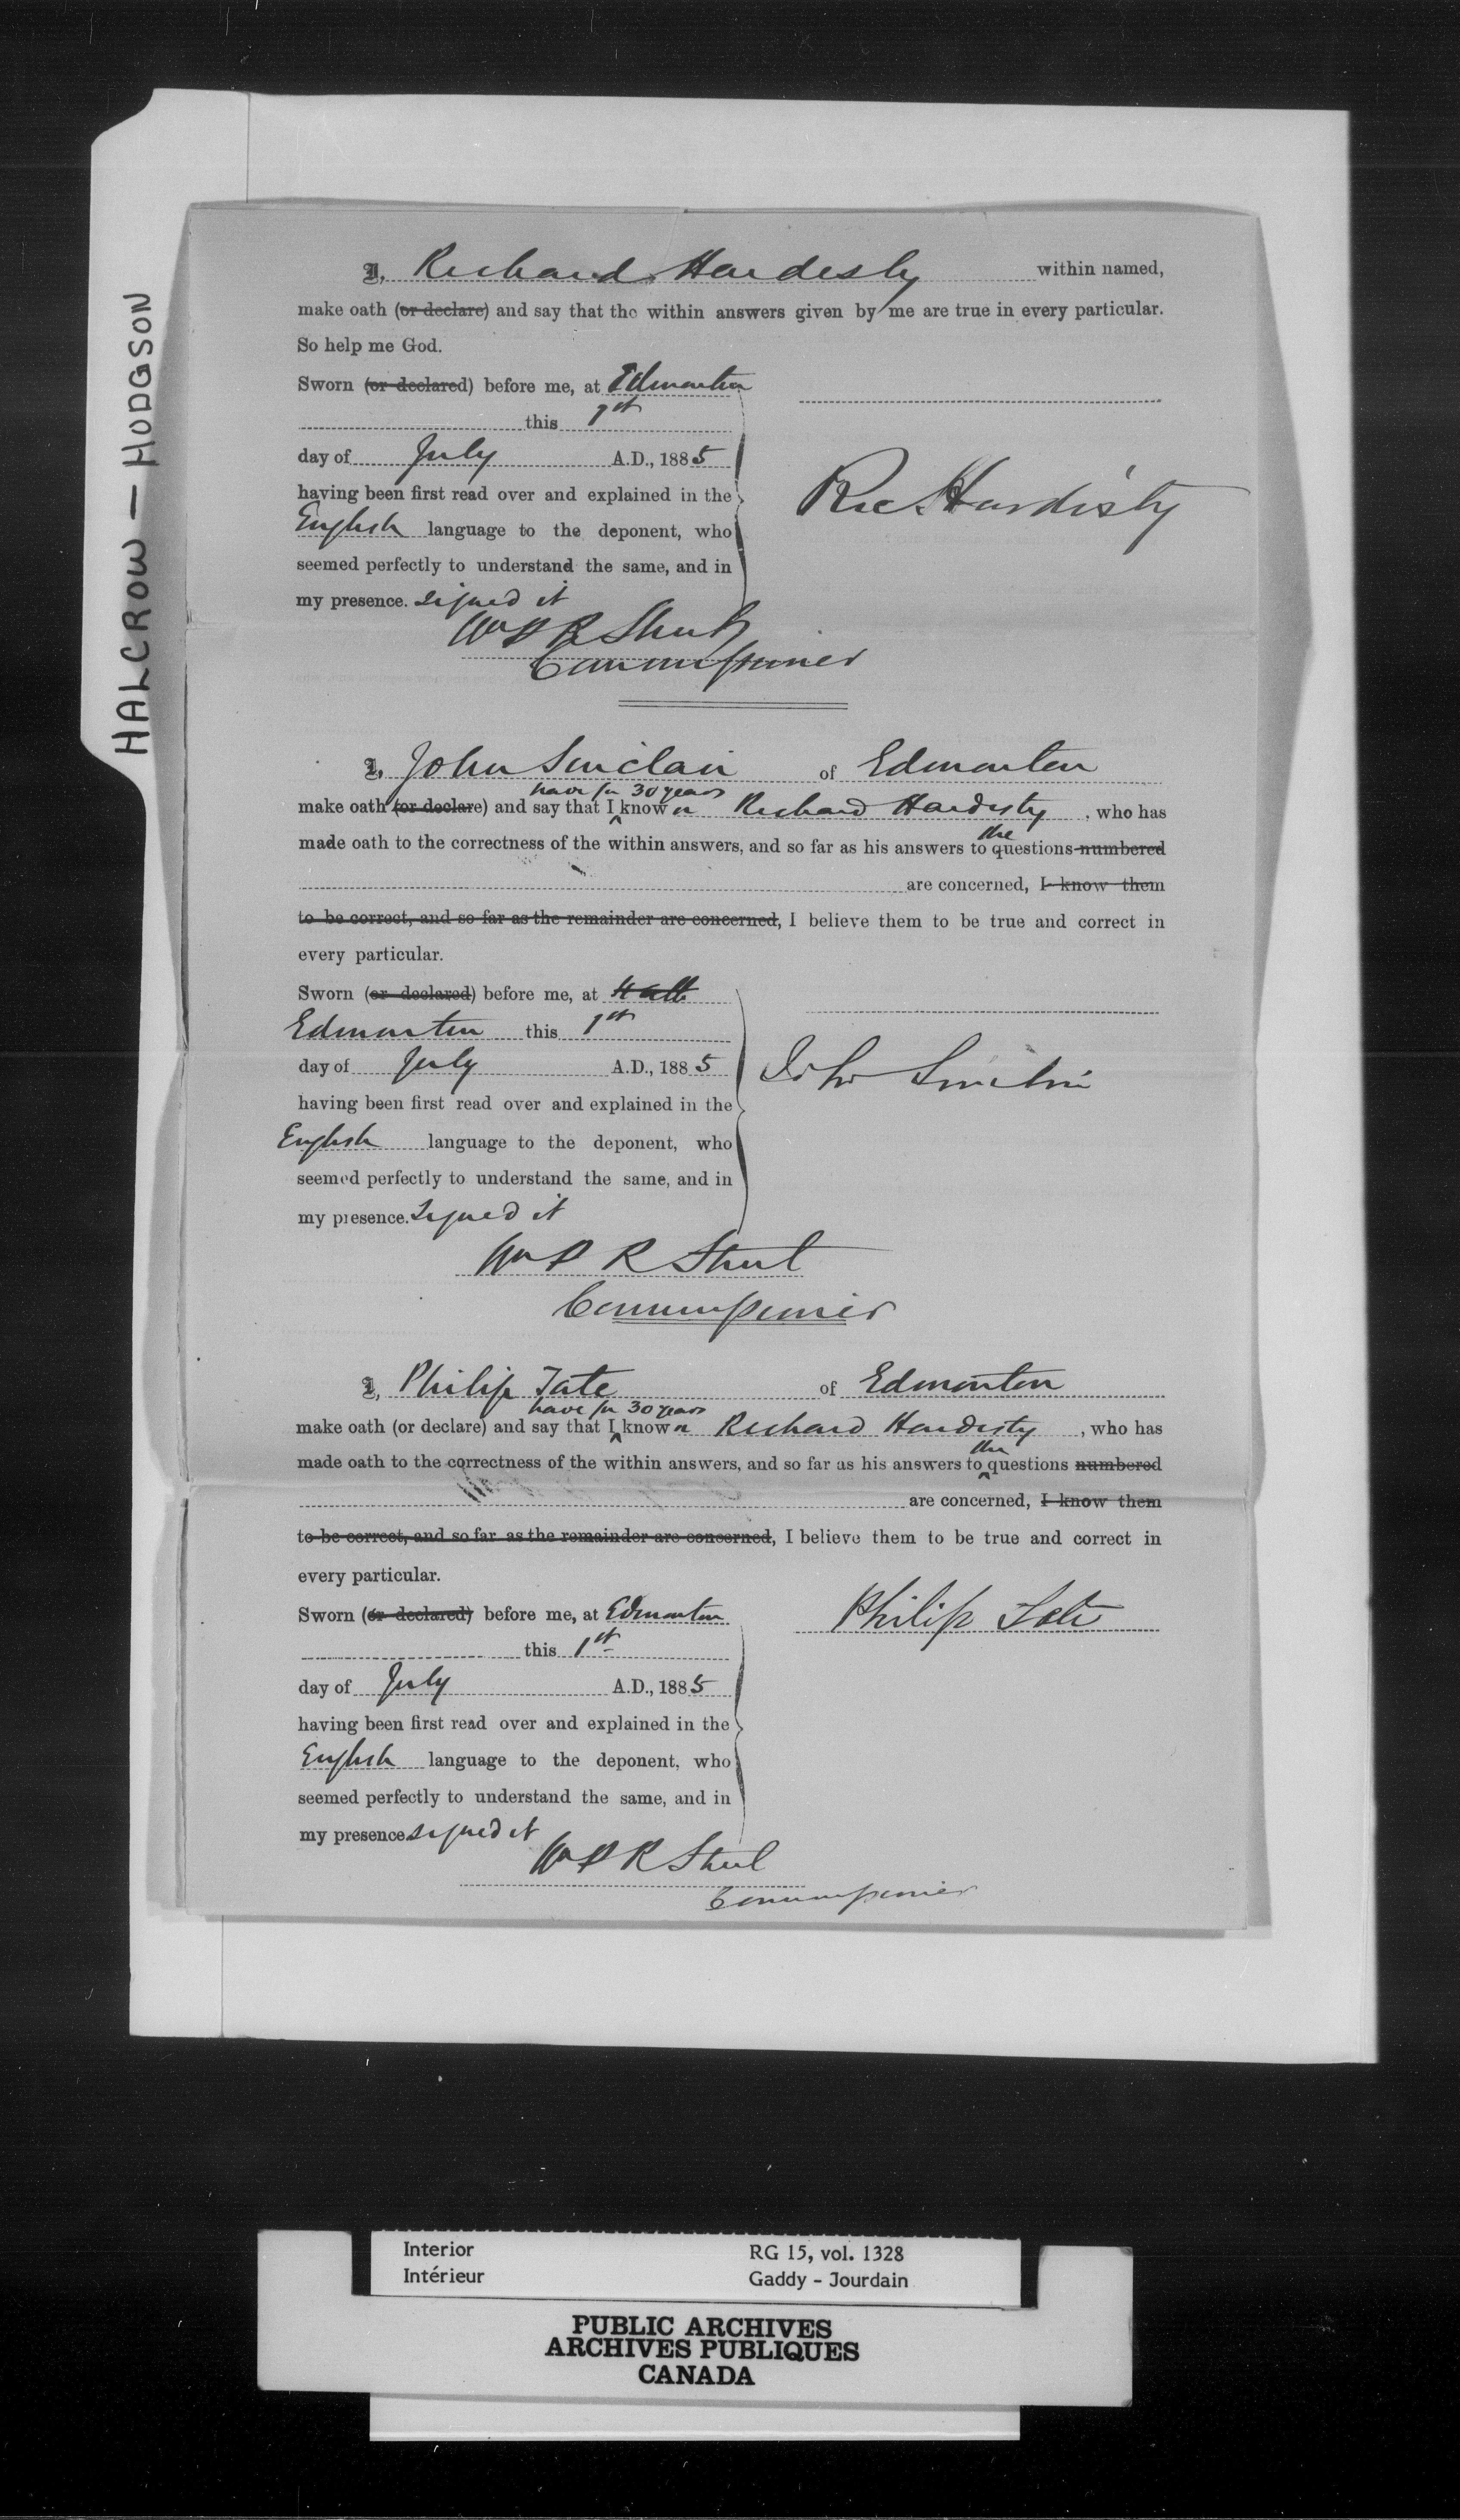 HALCROW — HODGSON
I, Richard Hardesty within named,
make oath (or declare) and say that the within answers given by me are true in every particular.
So help me God.
Sworn (or declared) before me, at Edmonton
this 1st
day of July A.D., 1885
having been first read over and explained in the
English language to the deponent, who
seemed perfectly to understand the same, and in
my presence. signed it
Ric Hardisty
Wm P R Street
Commissioner
I, John Sinclair of Edmonton
have for 30 years
make oath (or declare) and say that I known Richard Hardisty, who has
the
made oath to the correctness of the within answers, and so far as his answers to questions numbered
are concerned, I know them
to be correct, and so far as the remainder are concerned, I believe them to be true and correct in
every particular.
Sworn (or declared) before me, at
Edmonton this 1st
day of July A.D., 1885
having been first read over and explained in the
English language to the deponent, who
seemed perfectly to understand the same, and in
my presence. signed it
John Sinclair
Wm P R Street
Commissioner
I, Philip Tate of Edmonton
have for 30 years
make oath (or declare) and say that I known Richard Hardisty, who has
the
made oath to the correctness of the within answers, and so far as his answers to questions numbered
are concerned, I know them
to be correct, and so far as the remainder are concerned, I believe them to be true and correct in
every particular.
Sworn (or declared) before me, at Edmonton
this 1st
day of July A.D., 1885
having been first read over and explained in the
English language to the deponent, who
seemed perfectly to understand the same, and in
my presence signed it
Philip Tate
Wm P R Street
Commissioner
Interior RG 15, vol. 1328
Intérieur Gaddy - Jourdain
PUBLIC ARCHIVES
ARCHIVES PUBLIQUES
CANADA